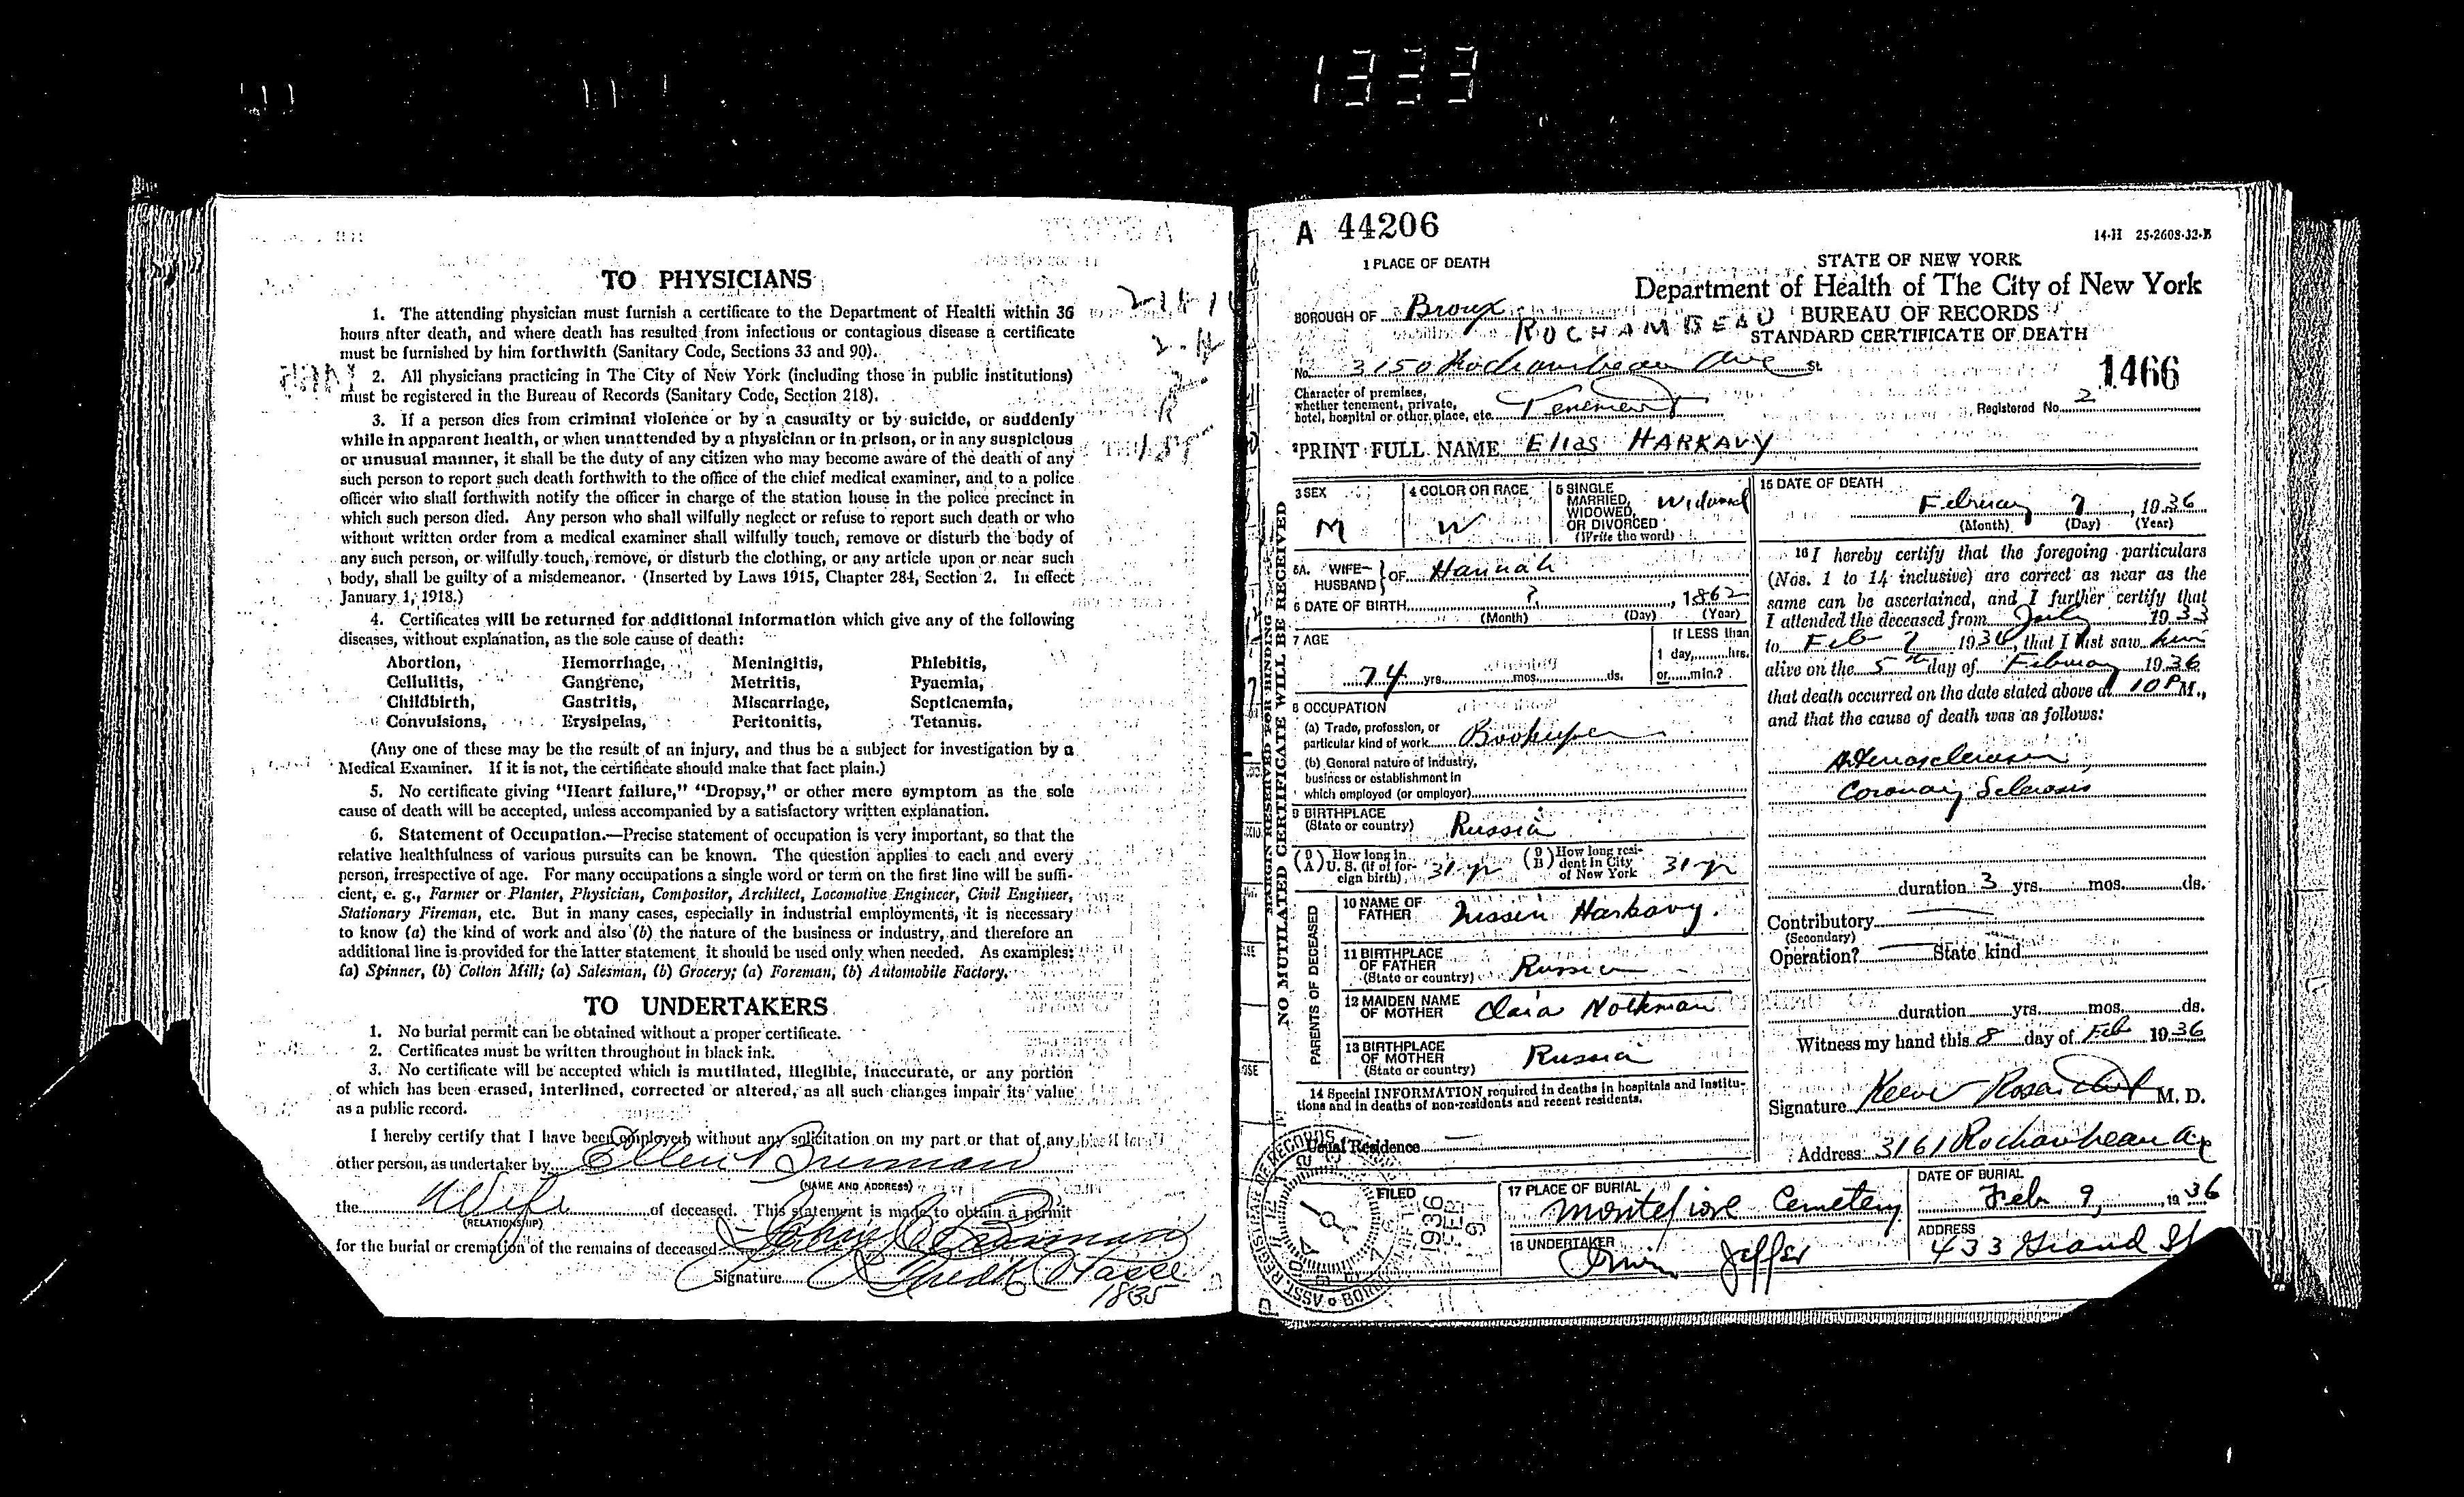 1333
TO PHYSICIANS
1. The attending physician must furnish a certificate to the Department of Health within 36
hours after death, and where death has resulted from infectious or contagious disease a certificate
must be furnished by him forthwith (Sanitary Code, Sections 33 and 90).
2. All physicians practicing in The City of New York (including those in public institutions)
must be registered in the Bureau of Records (Sanitary Code, Section 218).
3. If a person dies from criminal violence or by a casualty or by suicide, or suddenly
while in apparent health, or when unattended by a physician or in prison, or in any suspicious
or unusual manner, it shall be the duty of any citizen who may become aware of the death of any
such person to report such death forthwith to the office of the chief medical examiner, and to a police
officer who shall forthwith notify the officer in charge of the station house in the police precinct in
which such person died. Any person who shall wilfully neglect or refuse to report such death or who
without written order from a medical examiner shall wilfully touch, remove or disturb the body of
any such person, or wilfully touch, remove, or disturb the clothing, or any article upon or near such
body, shall be guilty of a misdemeanor. (Inserted by Laws 1915, Chapter 284, Section 2. In effect
January 1, 1918.)
4. Certificates will be returned for additional information which give any of the following
diseases, without explanation, as the sole cause of death:
Abortion, Hemorrhage, Meningitis, Phlebitis,
Cellulitis, Gangrene, Metritis, Pyaemia,
Childbirth, Gastritis, Miscarriage, Septicaemia,
Convulsions, Erysipelas, Peritonitis, Tetanus.
(Any one of these may be the result of an injury, and thus be a subject for investigation by a
Medical Examiner. If it is not, the certificate should make that fact plain.)
5. No certificate giving "Heart failure," "Dropsy," or other mere symptom as the sole
cause of death will be accepted, unless accompanied by a satisfactory written explanation.
6. Statement of Occupation.—Precise statement of occupation is very important, so that the
relative healthfulness of various pursuits can be known. The question applies to each and every
person, irrespective of age. For many occupations a single word or term on the first line will be suffi-
cient, e. g., Farmer or Planter, Physician, Compositor, Architect, Locomotive Engineer, Civil Engineer,
Stationary Fireman, etc. But in many cases, especially in industrial employments, it is necessary
to know (a) the kind of work and also (b) the nature of the business or industry, and therefore an
additional line is provided for the latter statement, it should be used only when needed. As examples:
(a) Spinner, (b) Cotton Mill; (a) Salesman, (b) Grocery; (a) Foreman, (b) Automobile Factory.
TO UNDERTAKERS
1. No burial permit can be obtained without a proper certificate.
2. Certificates must be written throughout in black ink.
3. No certificate will be accepted which is mutilated, illegible, inaccurate, or any portion
of which has been erased, interlined, corrected or altered, as all such changes impair its value
as a public record.
I hereby certify that I have been employed without any solicitation on my part or that of any
other person, as undertaker by Ellen Brennan
(NAME AND ADDRESS)
the Wife of deceased. This statement is made to obtain a permit
(RELATIONSHIP)
for the burial or cremation of the remains of deceased
Signature
1835
A 44206
14-H 25-2608-32-B
1 PLACE OF DEATH
STATE OF NEW YORK
Department of Health of The City of New York
BUREAU OF RECORDS
STANDARD CERTIFICATE OF DEATH
BOROUGH OF Bronx
ROCHAMBEAU
No. 3150 Rochambeau Ave St.
1466
Character of premises,
whether tenement, private,
hotel, hospital or other place, etc. Tenement
Registered No. 2
2 PRINT FULL NAME Elias HARKAVY
NO MUTILATED CERTIFICATE WILL BE RECEIVED
MARGIN RESERVED FOR BINDING
3 SEX M
4 COLOR OR RACE W
5 SINGLE MARRIED, WIDOWED, OR DIVORCED (Write the word) Widowed
5A. WIFE HUSBAND } OF Hannah
6 DATE OF BIRTH ?, 1862
(Month) (Day) (Year)
7 AGE 74 yrs. mos. ds.
If LESS than 1 day, hrs. or min.?
8 OCCUPATION
(a) Trade, profession, or
particular kind of work Bookkeeper
(b) General nature of industry,
business or establishment in
which employed (or employer)
9 BIRTHPLACE
(State or country) Russia
(9A) How long in U. S. (if of foreign birth) 31 yr
(9B) How long resident in City of New York 31 yr
PARENTS OF DECEASED
10 NAME OF FATHER Nissen Harkavy.
11 BIRTHPLACE OF FATHER (State or country) Russia
12 MAIDEN NAME OF MOTHER Clara
13 BIRTHPLACE OF MOTHER (State or country) Russia
14 Special INFORMATION required in deaths in hospitals and institu-
tions and in deaths of non-residents and recent residents.
Usual Residence —
15 DATE OF DEATH
February 7, 1936
(Month) (Day) (Year)
16 I hereby certify that the foregoing particulars
(Nos. 1 to 14 inclusive) are correct as near as the
same can be ascertained, and I further certify that
I attended the deceased from July 1933
to Feb 7 1936, that I last saw him
alive on the 5th day of February 1936
that death occurred on the date stated above at 10 P M.,
and that the cause of death was as follows:
Arteriosclerosis,
Coronary Sclerosis
duration 3 yrs. mos. ds.
Contributory
(Secondary)
Operation? State kind
duration yrs. mos. ds.
Witness my hand this 8 day of Feb 1936
Signature M. D.
Address 3161 Rochambeau Ave
FILED
1936 FEB 9
17 PLACE OF BURIAL
Montefiore Cemetery
DATE OF BURIAL
Feb 9, 1936
18 UNDERTAKER
Irwin Jeffer
ADDRESS
433 Grand St